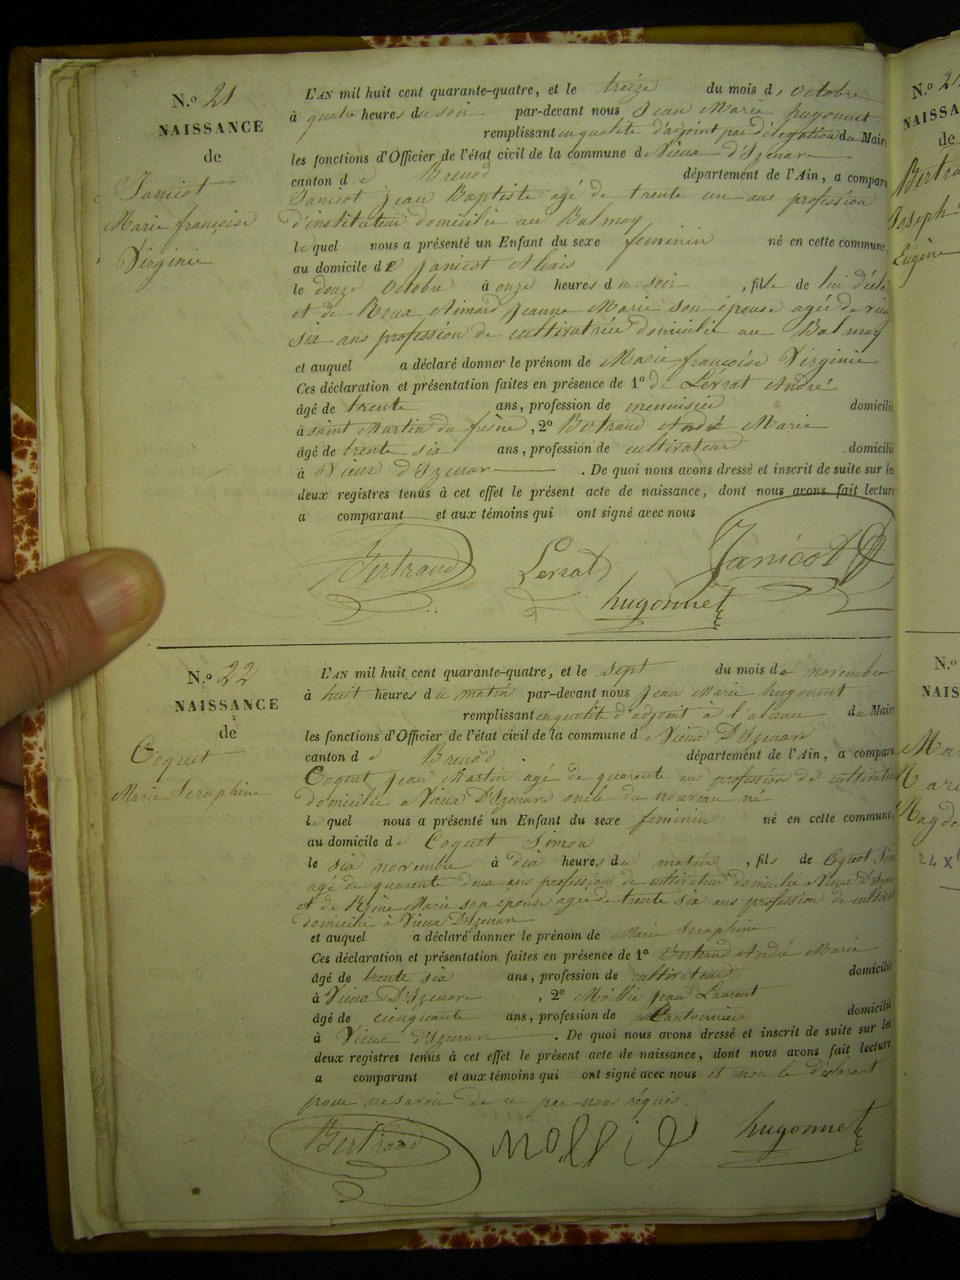 N.° 21
NAISSANCE
de
Janicot
Marie françoise
Virginie
L'AN mil huit cent quarante-quatre, et le treize du mois d octobre
à quatre heures du soir par-devant nous Jean Marie hugonnet
remplissant en qualité d'adjoint par délégation du Maire
les fonctions d'Officier de l'état civil de la commune d Vieux d'Izenave
canton d e Brenod département de l'Ain, a comparu
Janicot Jean Baptiste agé de trente un ans profession
d'instituteur domicilié au Balmay
le quel nous a présenté un Enfant du sexe feminin né en cette commune,
au domicile de Janicot Alexis
le douze Octobre à onze heures du soir, fille de lui décla
et de Roux Aimard Jeanne Marie son épouse agée de vin
six ans profession de cultivatrice domicilié au Balmay
et auquel a déclaré donner le prénom de Marie françoise Virginie
Ces déclaration et présentation faites en présence de 1° de Lerrat André
âgé de trente ans, profession de menuisier domicilié
à saint Martin du frêne, 2° Bertrand André Marie
âgé de trente six ans, profession de cultivateur domicilié
à Vieux d'Izenave. De quoi nous avons dressé et inscrit de suite sur les
deux registres tenus à cet effet le présent acte de naissance, dont nous avons fait lecture
a comparant et aux témoins qui ont signé avec nous
Bertrand Lerrat Janicot
hugonnet
N.° 22
NAISSANCE
de
Coquet
Marie Seraphine
L'AN mil huit cent quarante-quatre, et le sept du mois de novembre
à huit heures du matin par-devant nous Jean Marie hugonnet
remplissant en qualité d'adjoint à l'absence du Maire
les fonctions d'Officier de l'état civil de la commune d Vieux D'Izenave
canton d e Brenod département de l'Ain, a comparu
Coquet Jean Martin agé de quarante ans profession de cultivateur
domicilié a Vieux D'Izenave oncle du nouveau né
le quel nous a présenté un Enfant du sexe feminin né en cette commune,
au domicile de Coquet Simon
le six novembre à dix heures du matin, fils de Coquet Sim
agé de quarante deux ans profession de cultivateur domicilié a Vieux D'Izenave
et de Reine Marie son epouse agée de trente six ans profession de cultiva
domicilié à Vieux D'Izenave
et auquel a déclaré donner le prénom de Marie Seraphine
Ces déclaration et présentation faites en présence de 1° Bertrand André Marie
âgé de trente six ans, profession de cultivateur domicilié
à Vieux D'Izenave, 2° Mollie Jean Laurent
âgé de cinquante ans, profession de Cantonnier domicilié
à Vieux d'Izenave. De quoi nous avons dressé et inscrit de suite sur les
deux registres tenus à cet effet le présent acte de naissance, dont nous avons fait lecture
a comparant et aux témoins qui ont signé avec nous et non le déclarant
pour ne savoir de ce par nous réquis.
Bertrand Mollie hugonnet
N.° 2
NAISSA
de
Bertra
Joseph
Eugène
N.°
NAIS
Mar
24 x